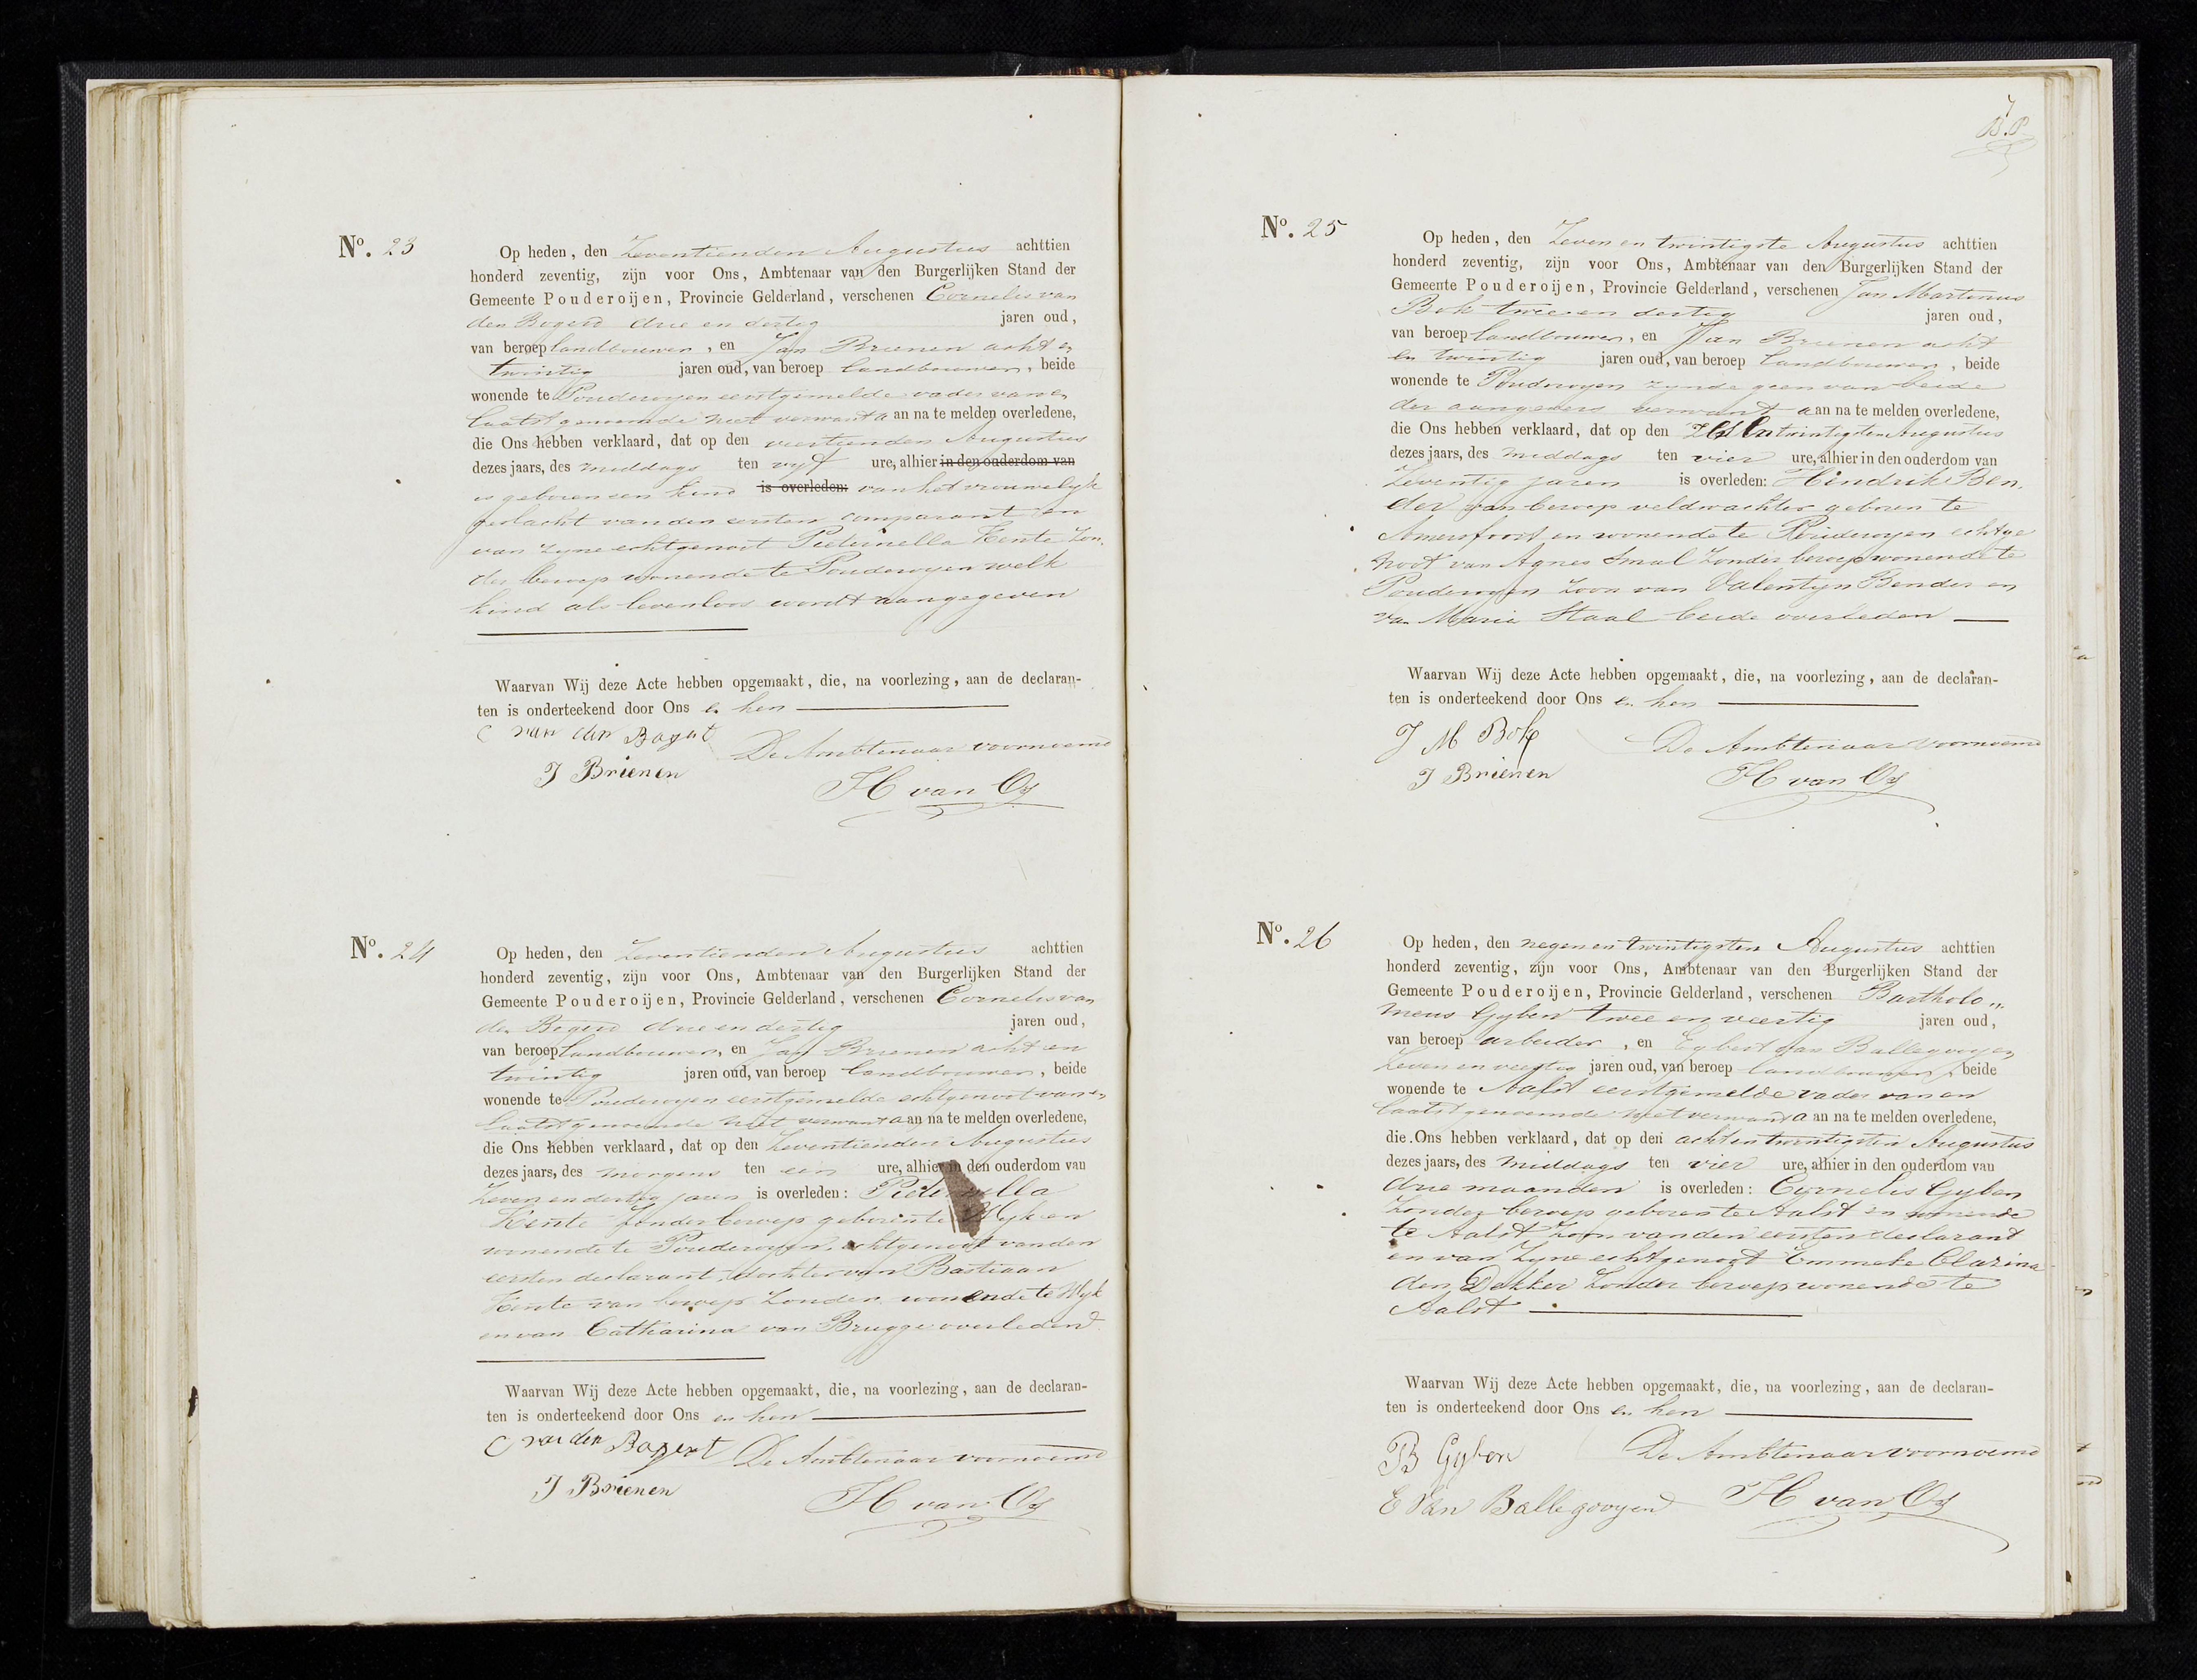 No. 23
Op heden, den Zeventienden Augustus achttien
honderd zeventig, zijn voor Ons, Ambtenaar van den Burgerlijken Stand der
Gemeente Pouderoijen, Provincie Gelderland, verschenen Cornelis van
den Bogerd drie en dertig jaren oud,
van beroep landbouwer, en Jan Brienen acht en
twintig jaren oud, van beroep landbouwer, beide
wonende te Pouderoyen eerstgemelde vader van en
laatstgenoemde niet verwant aan na te melden overledene,
die Ons hebben verklaard, dat op den veertienden Augustus
dezes jaars, des middags ten vyf ure, alhier in den ouderdom van
is geboren een kind is overleden: van het vrouwelyk
geslacht van den eersten comparant en
van zyne echtgenoot Pieternella Kente Zon,
der beroep wonende te Pouderoyen welk
kind als levenloos wordt aangegeven
Waarvan Wij deze Acte hebben opgemaakt, die, na voorlezing, aan de declaran-
ten is onderteekend door Ons en hen
C van den Bogert De Ambtenaar voornoemd
J Brienen H van Os
No. 24
Op heden, den Zeventienden Augustus achttien
honderd zeventig, zijn voor Ons, Ambtenaar van den Burgerlijken Stand der
Gemeente Pouderoijen, Provincie Gelderland, verschenen Cornelis van
den Bogerd drie en dertig jaren oud,
van beroep landbouwer, en Jan Brienen acht en
twintig jaren oud, van beroep landbouwer, beide
wonende te Pouderoyen eerstgemelde echtgenoot van en
laatstgenoemde niet verwant aan na te melden overledene,
die Ons hebben verklaard, dat op den Zeventienden Augustus
dezes jaars, des morgens ten een ure, alhier in den ouderdom van
Zeven en dertig jaren is overleden: Pieternella
Kente Zonder beroep geboren te Wyk en
wonende te Pouderoyen, echtgenoot van den
eersten declarant, dochter van Bastiaan
Kente van beroep Zonder wonende te Wyk
en van Catharina van Brugge overleden
Waarvan Wij deze Acte hebben opgemaakt, die, na voorlezing, aan de declaran-
ten is onderteekend door Ons en hen
C van den Bogert De Ambtenaar voornoemd
J Brienen H van Os
7
B.P.
No. 25
Op heden, den Zeven en twintigste Augustus achttien
honderd zeventig, zijn voor Ons, Ambtenaar van den Burgerlijken Stand der
Gemeente Pouderoijen, Provincie Gelderland, verschenen Jan Martinus
Bok twee en dertig jaren oud,
van beroep landbouwer, en Jan Brienen acht
en twintig jaren oud, van beroep landbouwer, beide
wonende te Pouderoyen zynde geen van beide
der aangevers verwant aan na te melden overledene,
die Ons hebben verklaard, dat op den Zes en twintigsten Augustus
dezes jaars, des middags ten vier ure, alhier in den ouderdom van
Zeventig jaren is overleden: Hendrik Ben,
der van beroep veldwachter geboren te
Amersfoort en wonende te Pouderoyen echtge
noot van Agnes Smal Zonder beroep wonende te
Pouderoyen Zoon van Valentyn Bender en
van Maria Staal beide overleden
Waarvan Wij deze Acte hebben opgemaakt, die, na voorlezing, aan de declaran-
ten is onderteekend door Ons en hen
J M Bok De Ambtenaar voornoemd
J Brienen H van Os
No. 26
Op heden, den negen en twintigsten Augustus achttien
honderd zeventig, zijn voor Ons, Ambtenaar van den Burgerlijken Stand der
Gemeente Pouderoijen, Provincie Gelderland, verschenen Bartholo„
meus Gyben twee en veertig jaren oud,
van beroep arbeider, en Egbert van Ballegooyen
Zeven en veertig jaren oud, van beroep landbouwer, beide
wonende te Aalst eerstgemelde vader van en
laatstgenoemde niet verwant aan na te melden overledene,
die Ons hebben verklaard, dat op den acht en twintigsten Augustus
dezes jaars, des middags ten vier ure, alhier in den ouderdom van
drie maanden is overleden: Cornelis Gyben
Zonder beroep geboren te Aalst en wonende
te Aalst Zoon van den eersten declarant
en van Zyne echtgenoot Emmeke Clarina
den Dekker Zonder beroep wonende te
Aalst
Waarvan Wij deze Acte hebben opgemaakt, die, na voorlezing, aan de declaran-
ten is onderteekend door Ons en hen
B Gyben De Ambtenaar voornoemd
E Van Ballegooyen H van Os